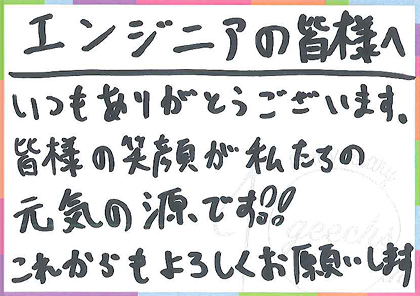 エンジニアの皆様へ
いつもありがとうございます。
皆様の笑顔が私たちの
元気の源です!!
これからもよろしくお願いします
geechs